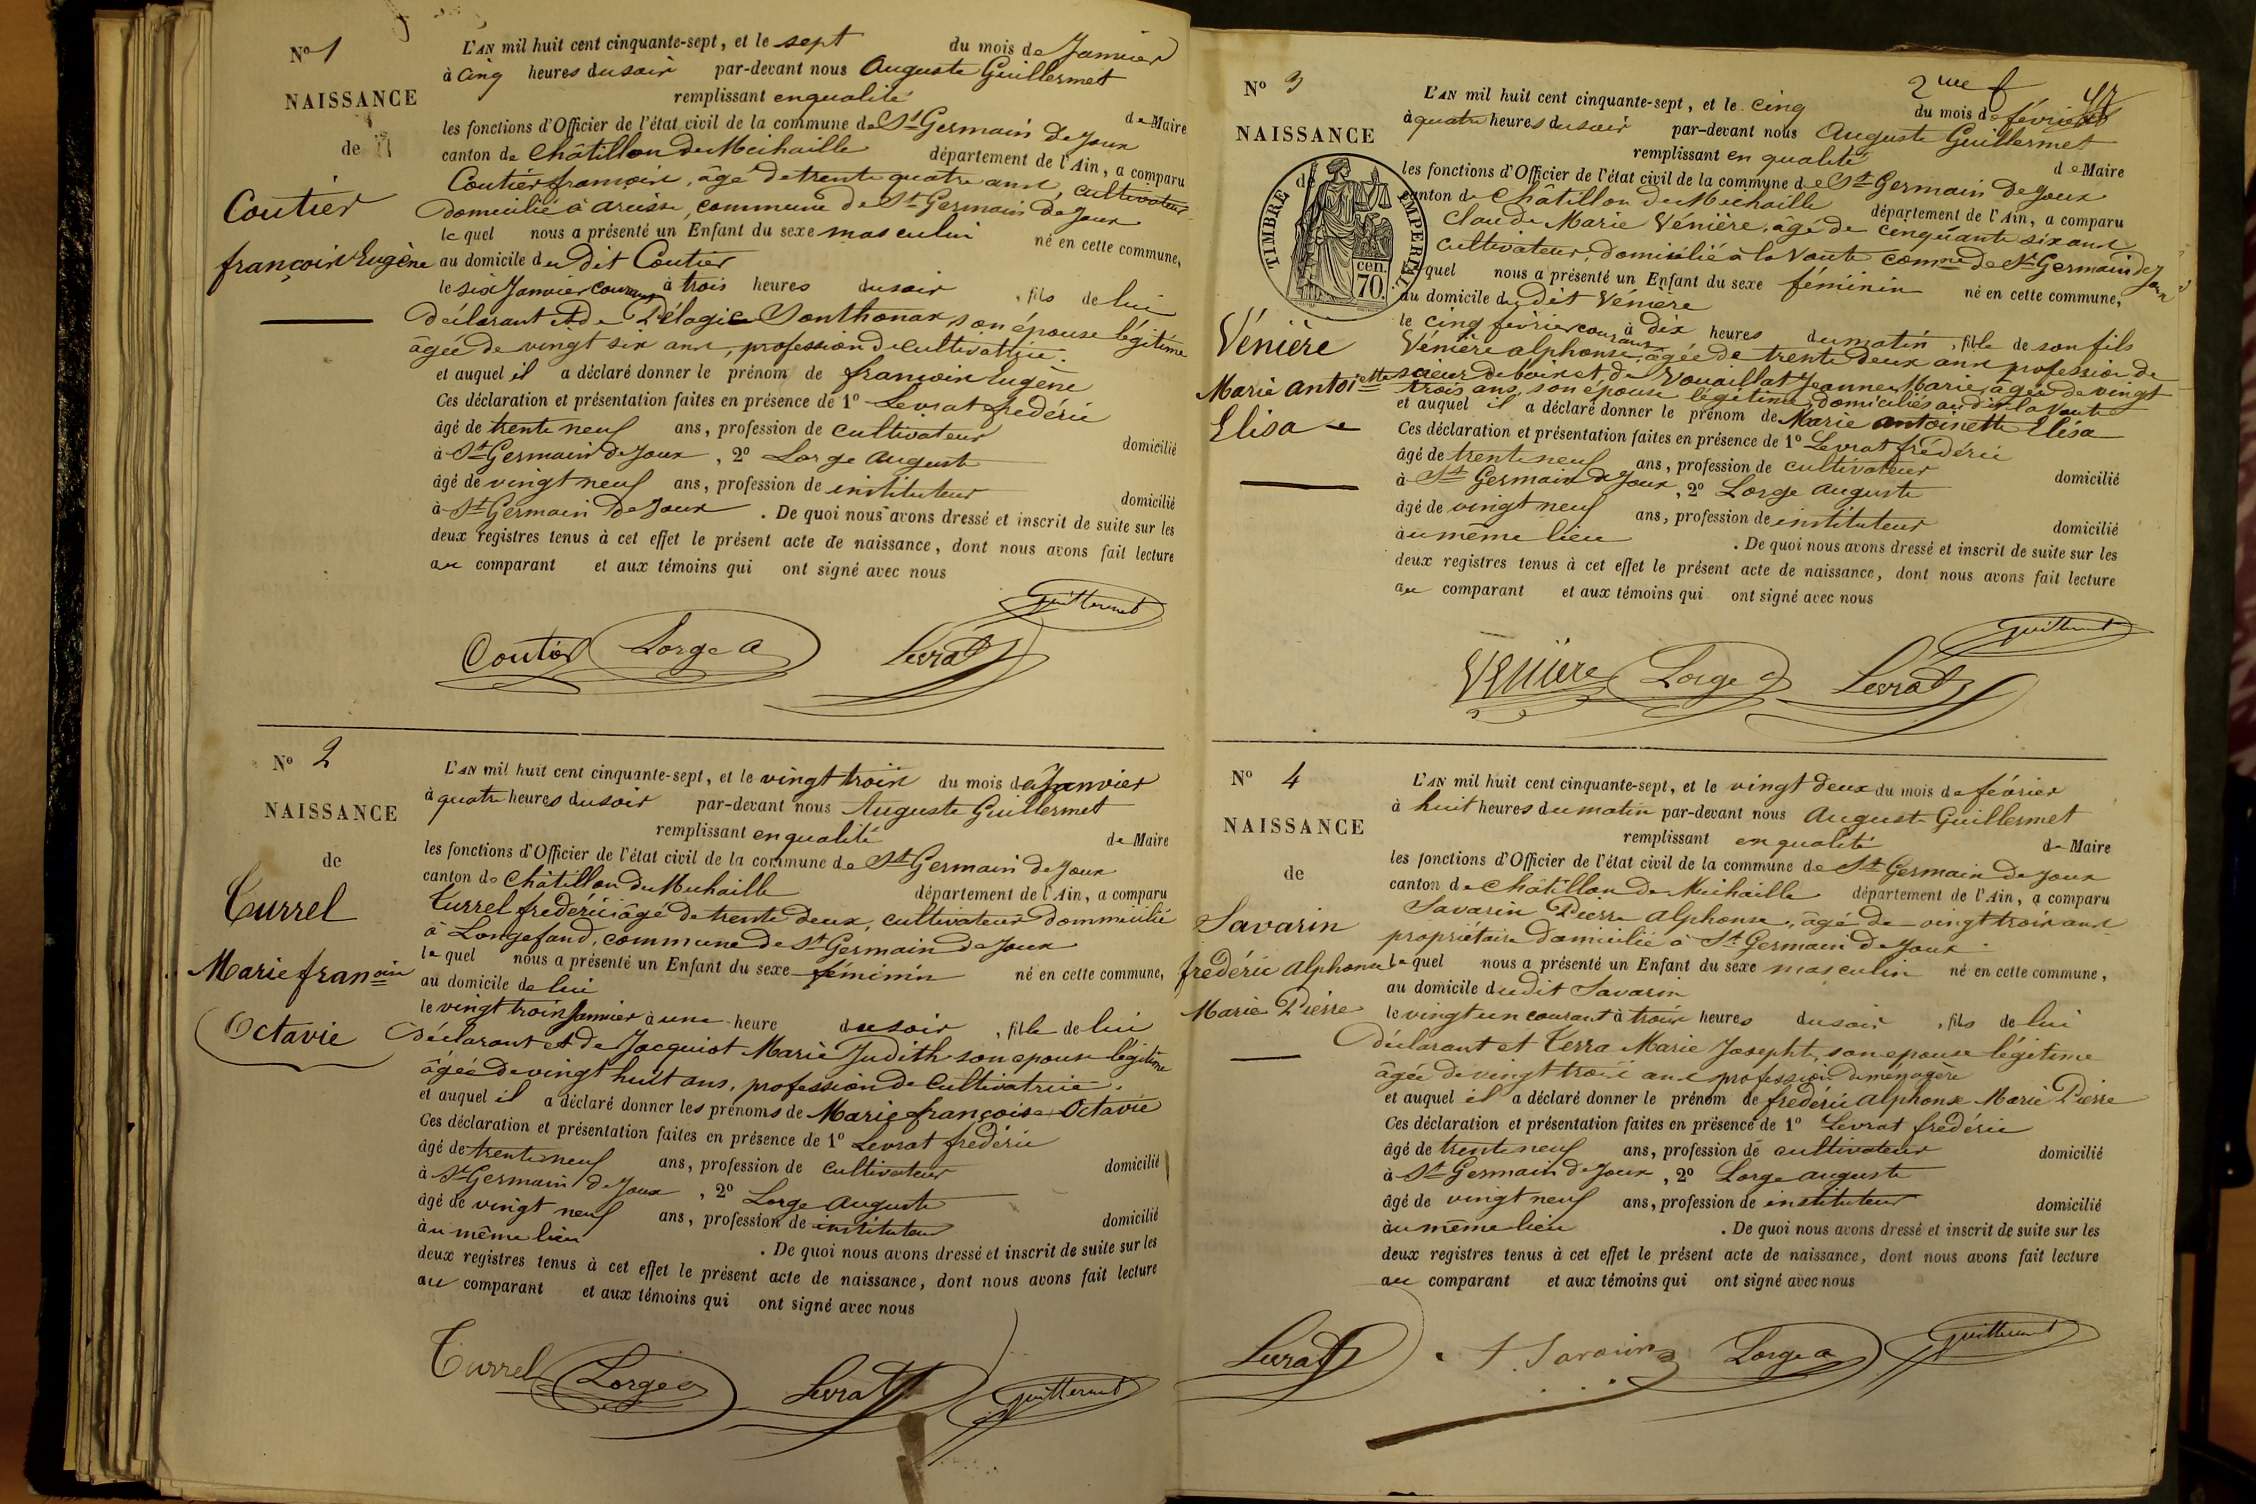 N° 1
NAISSANCE
de
Coutier
françois Eugène
L'AN mil huit cent cinquante-sept, et le sept du mois de Janvier
à cinq heures du soir par-devant nous Auguste Guillermet
remplissant en qualité de Maire
les fonctions d'Officier de l'état civil de la commune de St Germain de Joux
canton de Châtillon de Michaille département de l'Ain, a comparu
Coutier françois, âgé de trente quatre ans, cultivateur
domicilié à arusse, commune de St Germain de Joux
le quel nous a présenté un Enfant du sexe masculin né en cette commune,
au domicile du dit Coutier
le six Janvier courant à trois heures du soir, fils de lui
déclarant et de Pélagie Sonthonax son épouse légitime
âgée de vingt six ans, profession de cultivatrice.
et auquel il a déclaré donner le prénom de françois Eugène
Ces déclaration et présentation faites en présence de 1° Levrat frédéric
âgé de trente neuf ans, profession de cultivateur domicilié
à St Germain de Joux, 2° Lorge auguste
âgé de vingt neuf ans, profession de instituteur domicilié
à St Germain de Joux. De quoi nous avons dressé et inscrit de suite sur les
deux registres tenus à cet effet le présent acte de naissance, dont nous avons fait lecture
au comparant et aux témoins qui ont signé avec nous
Guillermet
Coutier Lorge a Levrat
N° 2
NAISSANCE
de
Turrel
Marie franoise
Octavie
L'AN mil huit cent cinquante-sept, et le vingt trois du mois de Janvier
à quatre heures du soir par-devant nous Auguste Guillermet
remplissant en qualité de Maire
les fonctions d'Officier de l'état civil de la commune de St Germain de Joux
canton de Châtillon de Michaille département de l'Ain, a comparu
Turrel frédéric âgé de trente deux, cultivateur dommicilié
à Longefand, commune de St Germain de Joux
le quel nous a présenté un Enfant du sexe féminin né en cette commune,
au domicile de lui
le vingt trois Janvier à une heure du soir, fille de lui
déclarant et de Jacquiot Marie Judith son epouse légitime
âgée de vingt huit ans, profession de Cultivatrice.
et auquel il a déclaré donner les prénoms de Marie françoise Octavie
Ces déclaration et présentation faites en présence de 1° Levrat frédéric
âgé de trente neuf ans, profession de cultivateur domicilié
à St Germain de Joux, 2° Lorge auguste
âgé de vingt neuf ans, profession de instituteur domicilié
au même lieu. De quoi nous avons dressé et inscrit de suite sur les
deux registres tenus à cet effet le présent acte de naissance, dont nous avons fait lecture
au comparant et aux témoins qui ont signé avec nous
Turrel Lorge a Levrat Guillermet
2me f
N° 3
NAISSANCE
de
TIMBRE IMPERIAL
70 cen.
Vénière
Marie antoiette
Elisa
L'AN mil huit cent cinquante-sept, et le cinq du mois de février
à quatre heures du soir par-devant nous Auguste Guillermet
remplissant en qualité de Maire
les fonctions d'Officier de l'état civil de la commune de St Germain de Joux
canton de Châtillon de Michaille département de l'Ain, a comparu
Claude Marie Vénière, âgé de cinquante six ans
cultivateur, domicilié à la Voute comne de St Germain de Joux
le quel nous a présenté un Enfant du sexe féminin né en cette commune,
au domicile du dit Vénière
le cinq février courant à dix heures du matin, fille de son fils
Vénière alphonse, âgée de trente deux ans profession de
scieur de bois et de Vouaillat Jeanne Marie, âgée de vingt
trois ans, son épouse légitime, domiciliés au dit la Voute
et auquel il a déclaré donner le prénom de Marie antoinette Elisa
Ces déclaration et présentation faites en présence de 1° Levrat frédéric
âgé de trente neuf ans, profession de cultivateur domicilié
à St Germain de Joux, 2° Lorge auguste
âgé de vingt neuf ans, profession de instituteur domicilié
au même lieu. De quoi nous avons dressé et inscrit de suite sur les
deux registres tenus à cet effet le présent acte de naissance, dont nous avons fait lecture
au comparant et aux témoins qui ont signé avec nous
Guillermet
Vénière Lorge a Levrat
N° 4
NAISSANCE
de
Savarin
frédéric alphonse
Marie Pierre
L'AN mil huit cent cinquante-sept, et le vingt deux du mois de février
à huit heures du matin par-devant nous Auguste Guillermet
remplissant en qualité de Maire
les fonctions d'Officier de l'état civil de la commune de St Germain de Joux
canton de Châtillon de Michaille département de l'Ain, a comparu
Savarin Pierre alphonse, âgé de vingt trois ans
propriétaire domicilié à St Germain de Joux
le quel nous a présenté un Enfant du sexe masculin né en cette commune,
au domicile du dit Savarin
le vingt un courant à trois heures du soir, fils de lui
déclarant et Terra Marie Josephte, son epouse légitime
âgée de vingt trois ans profession de ménagère
et auquel il a déclaré donner le prénom de frédéric alphonse Marie Pierre
Ces déclaration et présentation faites en présence de 1° Levrat frédéric
âgé de trente neuf ans, profession de cultivateur domicilié
à St Germain de Joux, 2° Lorge auguste
âgé de vingt neuf ans, profession de instituteur domicilié
au même lieu. De quoi nous avons dressé et inscrit de suite sur les
deux registres tenus à cet effet le présent acte de naissance, dont nous avons fait lecture
au comparant et aux témoins qui ont signé avec nous
Levrat Savarin Lorge a Guillermet